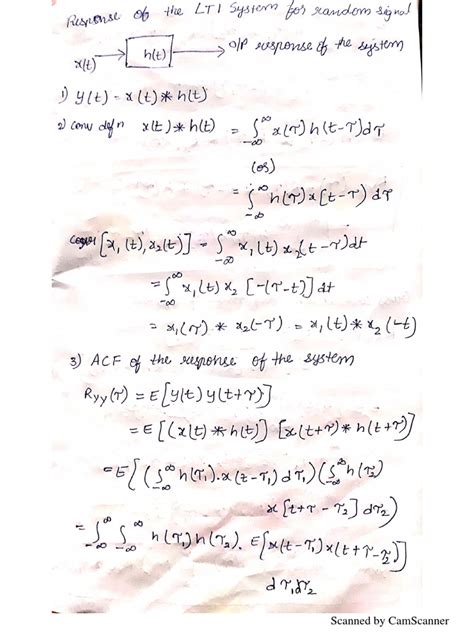 Response of the LTI System for random signal
x(t) h(t) O/P response of the system
1) y(t) = x(t) * h(t)
2) conv defn x(t) * h(t) = ∫_{-∞}^{∞} x(τ) h(t-τ)dτ
(or)
= ∫_{-∞}^{∞} h(τ) x[t-τ) dτ
[x₁(t), x₂(t)] = ∫_{-∞}^{∞} x₁(t) x₂(t-τ)dt
= ∫_{-∞}^{∞} x₁(t) x₂ [-(τ-t)] dt
= x₁(τ) * x₂(-τ) = x₁(t) * x₂(-t)
3) ACF of the response of the system
Ryy(τ) = E[y(t) y(t+τ)]
= E[(x(t) * h(t)] [x(t+τ) * h(t+τ)]
= E[(∫_{-∞}^{∞} h(τ₁).x(t-τ₁) dτ₁) (∫_{-∞}^{∞} h(τ₂)
x[t+τ-τ₂] dτ₂)
= ∫_{-∞}^{∞} ∫_{-∞}^{∞} h(τ₁) h(τ₂). E[x(t-τ₁) x(t+τ-τ₂)]
dτ₁dτ₂
Scanned by CamScanner